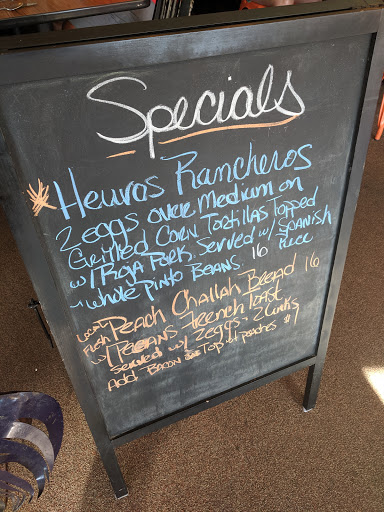 Specials
* Heuvos Rancheros
2 eggs over medium on
Grilled Corn Tortillas Topped
w/ Roja Pork. Served w/ Spanish
Rice
+ whole Pinto Beans 16
Local Fresh Peach Challah Bread 16
w/ Pecans French Toast
Served w/ 2 eggs - 2 links
Add Bacon Top w/ peaches $1